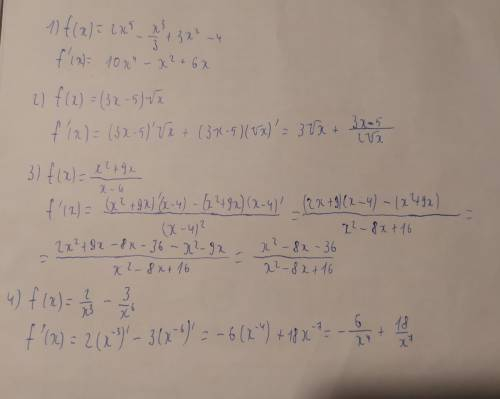 1) f(x) = 2x⁵ - x³/3 + 3x² - 4
f'(x) = 10x⁴ - x² + 6x
2) f(x) = (3x-5)√x
f'(x) = (3x-5)'√x + (3x-5)(√x)' = 3√x + (3x-5)/(2√x)
3) f(x) = (x²+9x)/(x-4)
f'(x) = ((x²+9x)'(x-4) - (x²+9x)(x-4)')/(x-4)² = ((2x+9)(x-4) - (x²+9x))/(x²-8x+16) =
= (2x²+9x-8x-36-x²-9x)/(x²-8x+16) = (x²-8x-36)/(x²-8x+16)
4) f(x) = 2/x³ - 3/x⁶
f'(x) = 2(x⁻³)' - 3(x⁻⁶)' = -6(x⁻⁴) + 18x⁻⁷ = -6/x⁴ + 18/x⁷